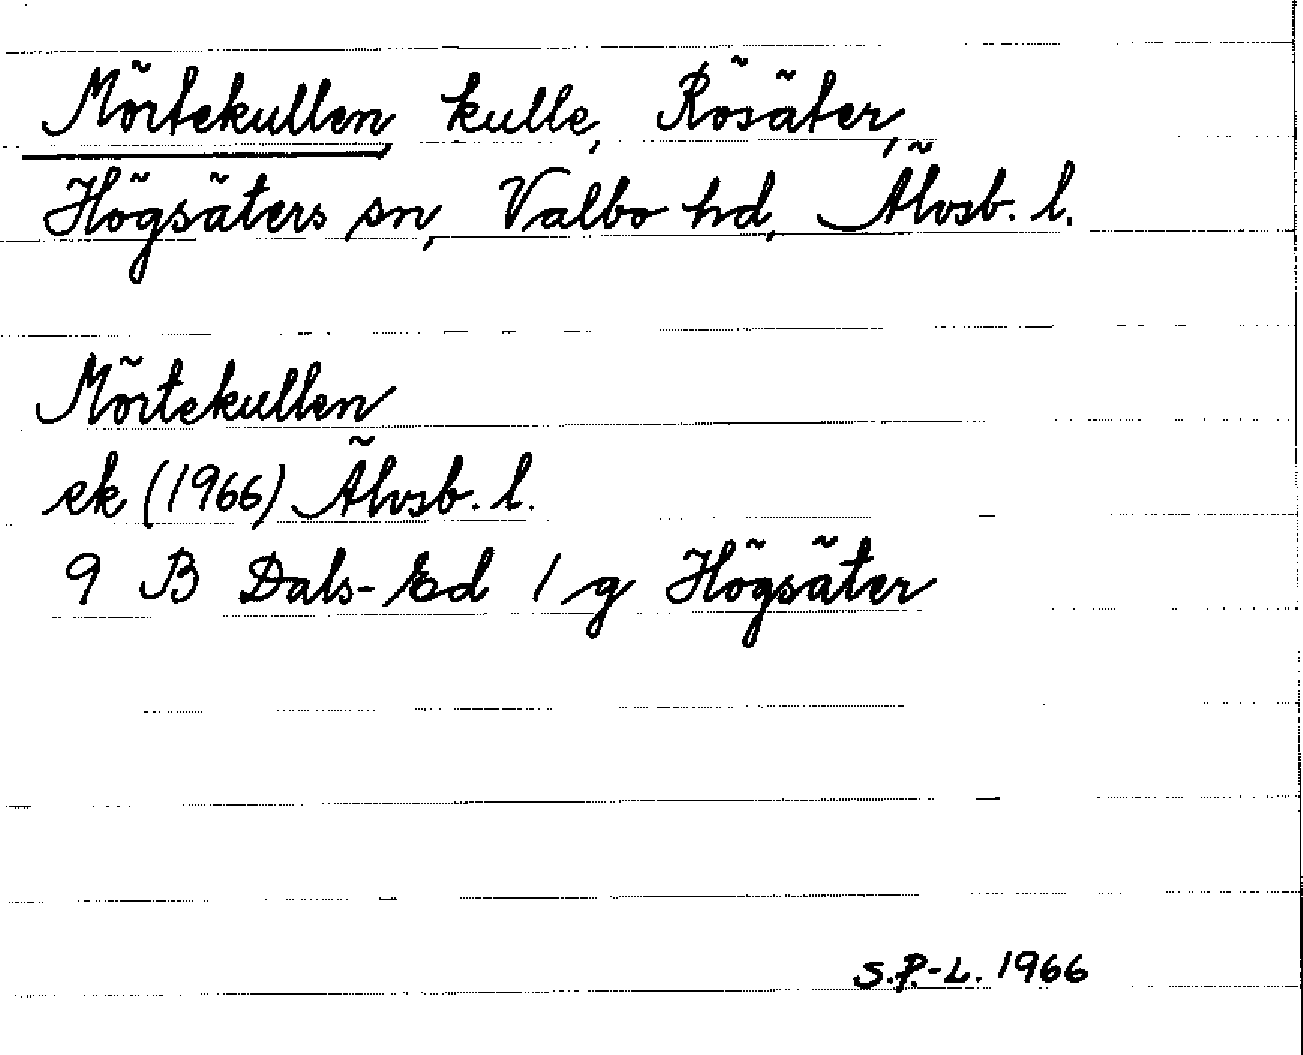 Mörtekullen, kulle, Rösäter,
Högsäters sn, Valbo hd, Älvsb. l.
Mörtekullen
ek (1966) Älvsb. l.
9 B Dals-Ed 1 g Högsäter
S.P.-L. 1966